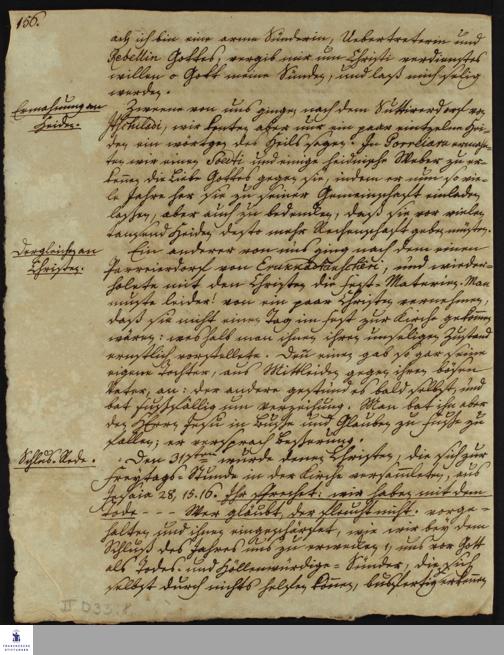 156.
ach ich bin eine arme Sünderin, Uebertreterin und
Rebellin Gottes, vergib mir um Christi verdienstes
willen o Gott meine Sünden, und laß mich selig
werden.
Ermahnung an
Heiden.
Zweene von uns gingen nach dem Suttirerdorf von
wir konten aber nur ein paar eintzelne Hei-
den ein wörtgen des Heils sagen. In Porreiar ermahn-
ten wir einen und einige heidnische Weber zu er-
kennen die Liebe Gottes gegen sie, indem er nun so vie-
le Jahre her sie zu seiner Gemeinschaft einladen
lassen, aber auch zu bedencken, daß sie vor vielen
tausend Heiden desto mehr Rechenschaft geben müsten.
Dergleichen an
Christen.
Ein anderer von uns ging nach dem einen
Parreierdorf von und wieder-
holete mit den Christen die Fest-Materien. Man
muste leider! von ein paar Christen vernehmen,
daß sie nicht einen Tag im Fest zur Kirche gekommen
wären: weshalb man ihnen ihren unseligen Zustand
ernstlich vorstellete. Den einen gab so gar seine
eigene Tochter, aus Mitleiden gegen ihren bösen
Vater, an: der andere gestund es bald selbst, und
bat fußfällig um verzeihung. Man bat ihn aber
dem Herrn Jesu in Busse und Glauben zu Fusse zu
fallen; er versprach besserung.
Schluß-Rede.
Den 31sten wurde denen Christen, die sich zur
Freytags-Stunde in der Kirche versammleten, aus
Jesaia 28, 15.16. Ihr sprechet: wir haben mit dem
Tode - - - Wer glaubt, der fleucht nicht. vorge-
halten und ihnen eingeschärfet, wie wir bey dem
Schluß des Jahres uns zu erwecken, uns vor Gott
als Todes- und Höllenwürdige-Sünder, die sich
selbst durch nichts helfen können, bussfertig erkennen
II D33:8.
FRANCKESCHE
STIFTUNGEN